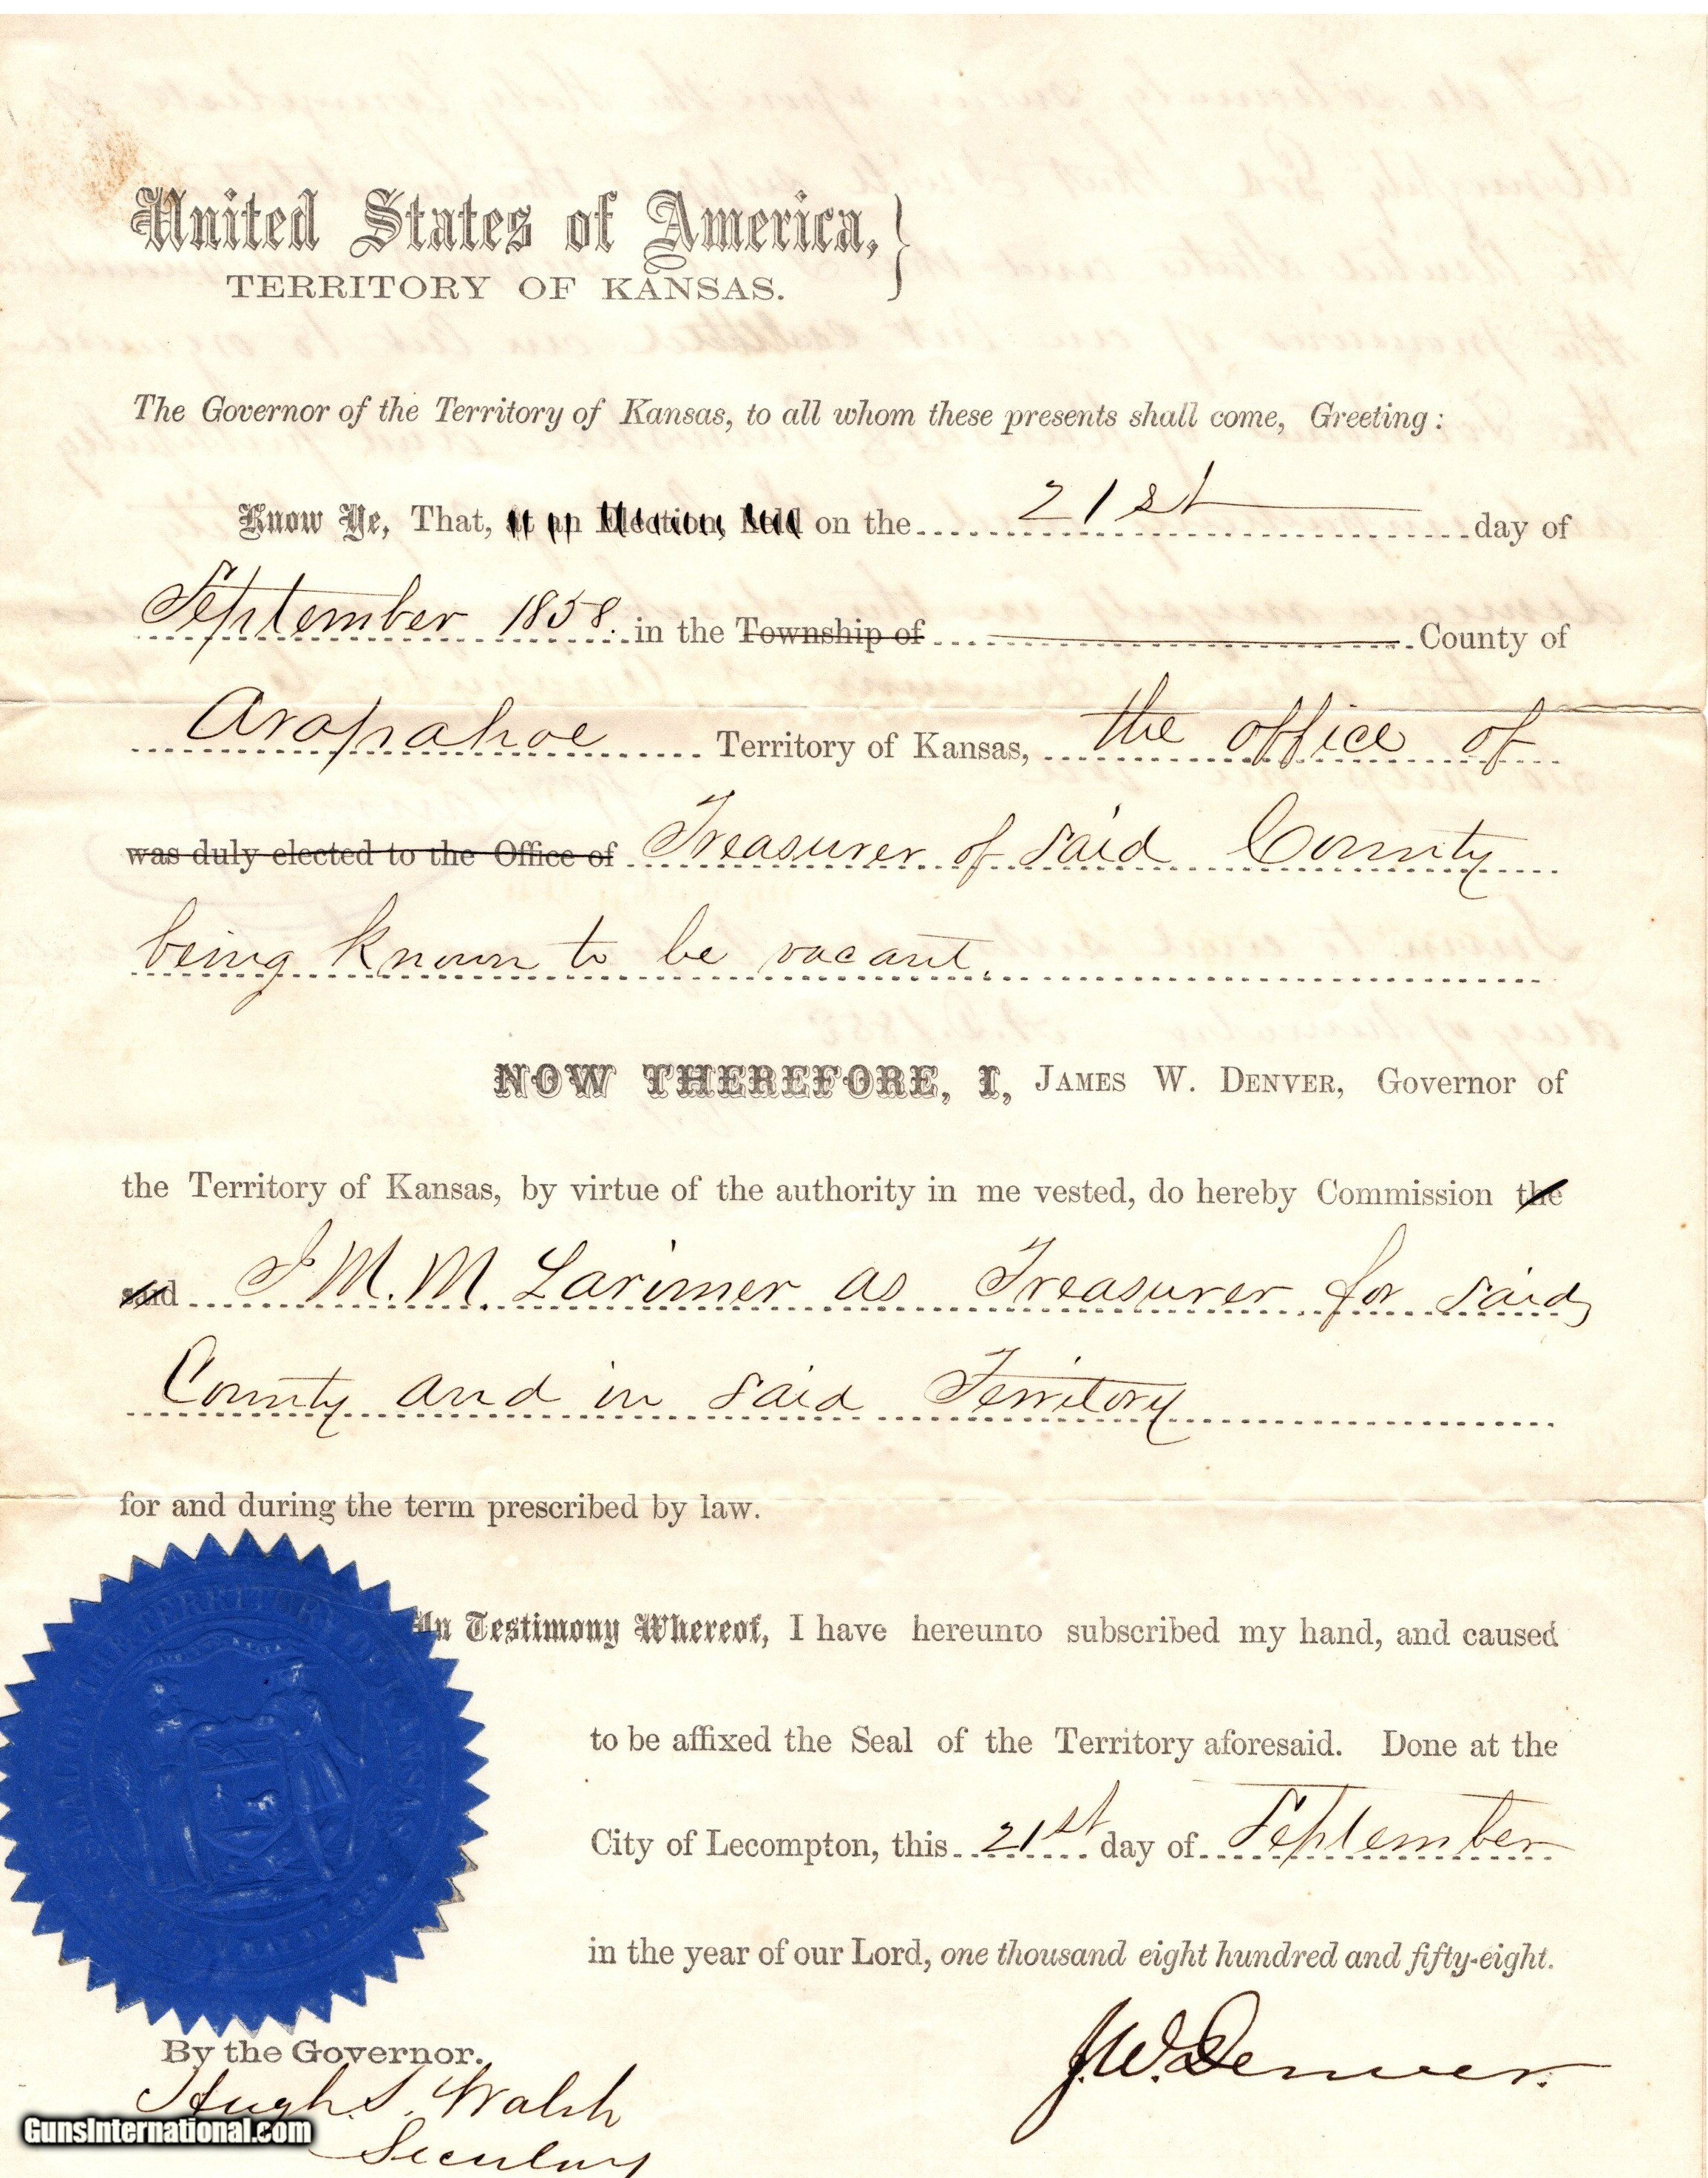 United States of America,
TERRITORY OF KANSAS.
The Governor of the Territory of Kansas, to all whom these presents shall come, Greeting:
Know Ye, That, at an Election, held on the 21st day of
September 1858. in the Township of County of
Arapahoe Territory of Kansas, the office of
was duly elected to the Office of Treasurer of said County
being known to be vacant.
NOW THEREFORE, I, JAMES W. DENVER, Governor of
the Territory of Kansas, by virtue of the authority in me vested, do hereby Commission the
said J M. M. Larimer as Treasurer for said
County and in said Territory
for and during the term prescribed by law.
In Testimony Whereof, I have hereunto subscribed my hand, and caused
to be affixed the Seal of the Territory aforesaid. Done at the
City of Lecompton, this 21st day of September
in the year of our Lord, one thousand eight hundred and fifty-eight.
By the Governor.
J.W. Denver.
Hugh S. Walsh
Secretary
GunsInternational.com